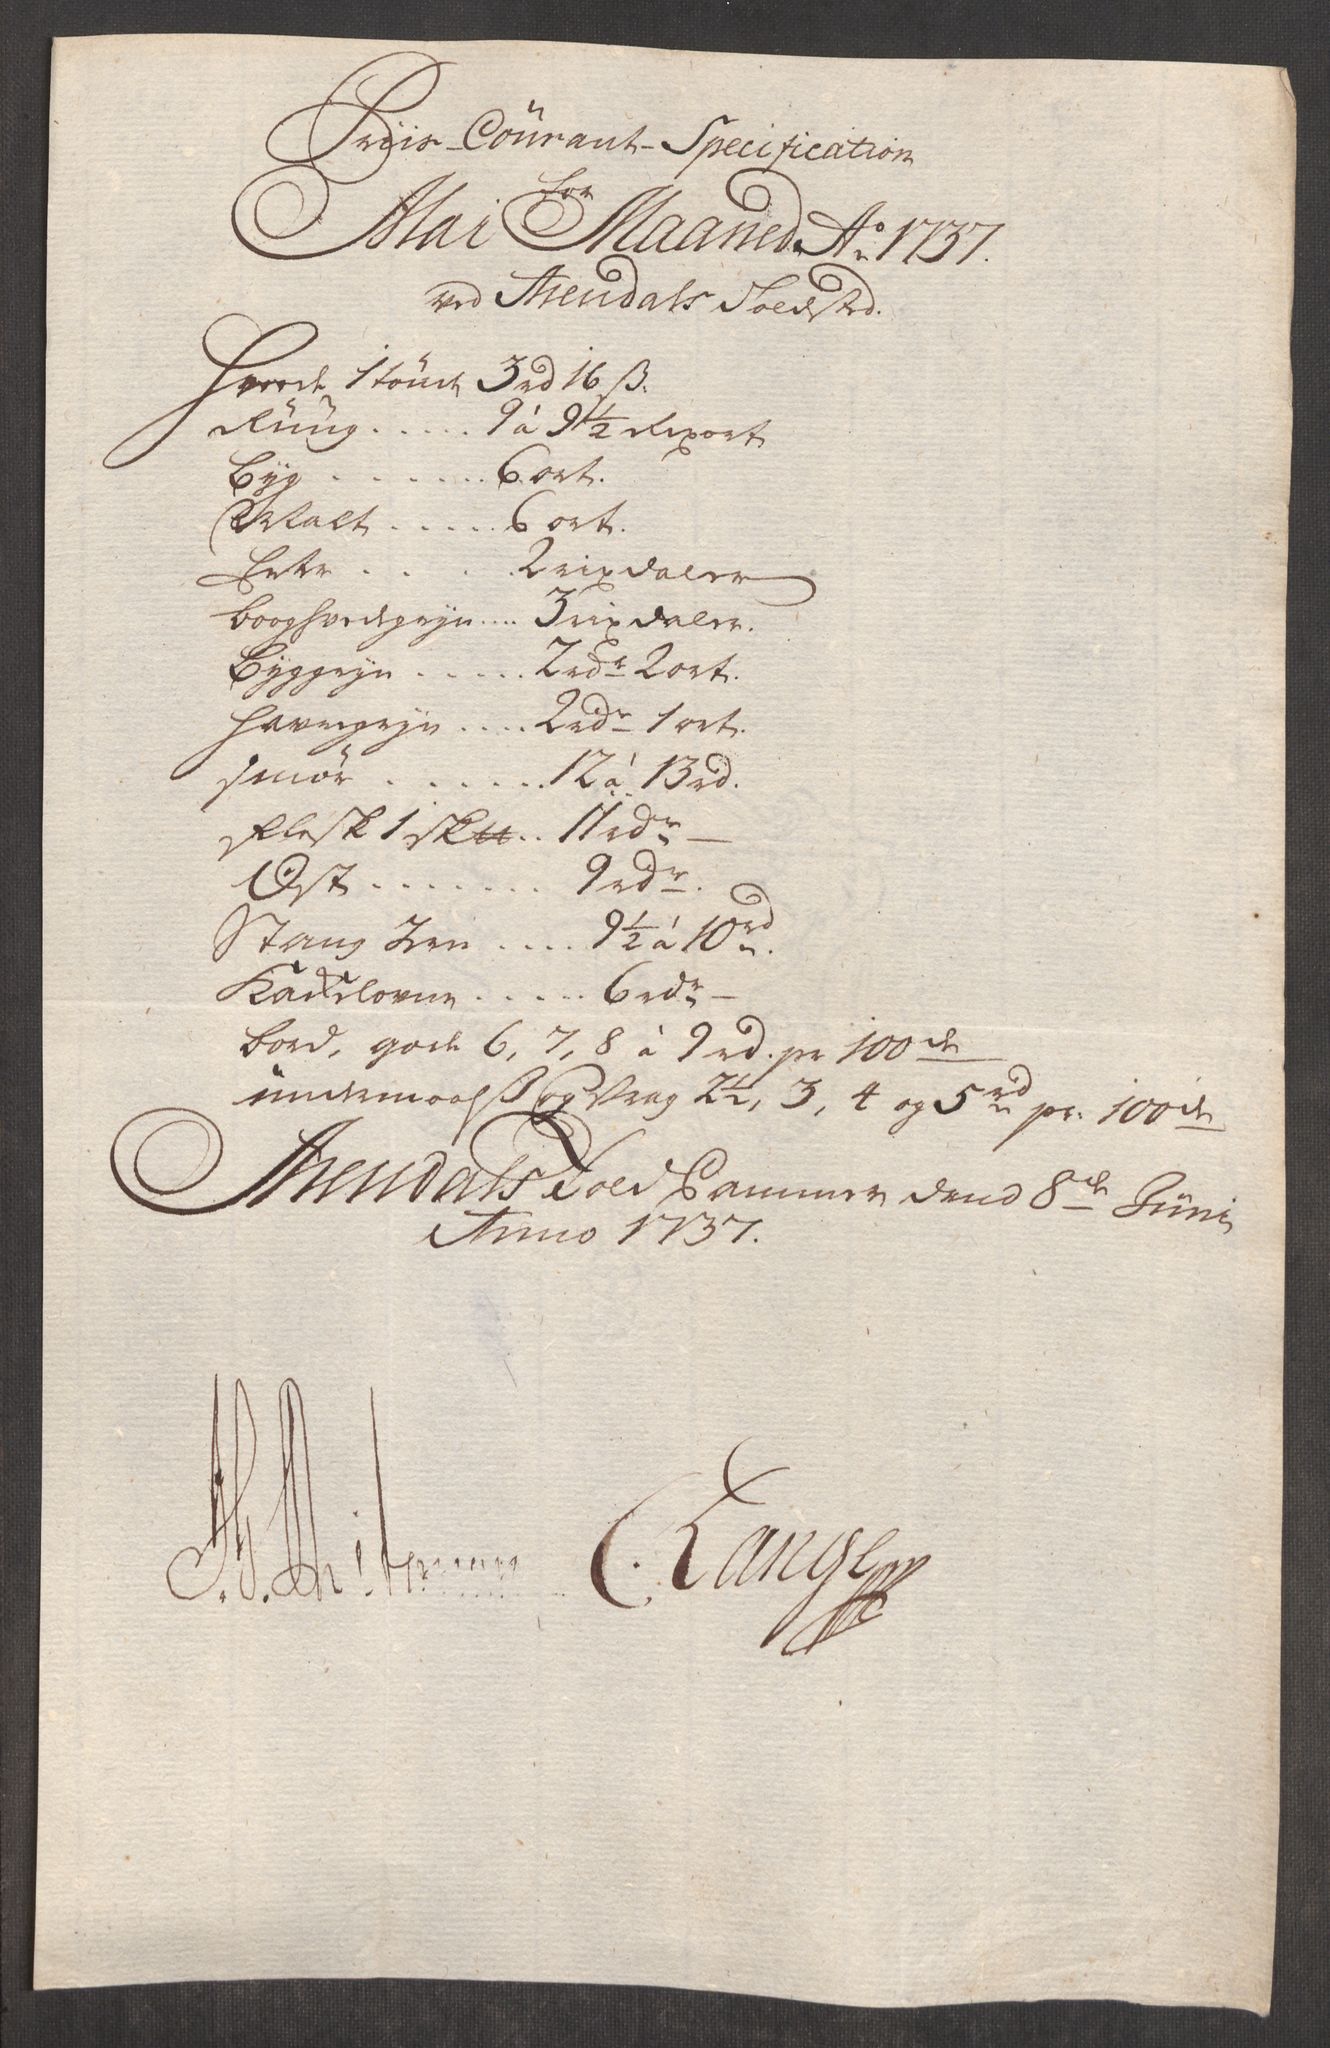 Priis-Coürant-Specification
for
Mai Maaned Ao 1737.
ved Arendals Toldsted.
Hvede 1 tönde 3 rd 16 ß.
Rüüg ..... 9 à 9½ Rixort
Byg ....... 6 ort.
Malt ..... 6 ort.
Erter . . . . 2 rixdaler
booghvedegryn .... 3 rixdaler.
Byggryn ...... 2 rdr 2 ort.
Havregryn .... 2 rdr 1 ort.
Smör ...... 12 à 13 rd.
Flesk 1 sk℔ .. 11 rdr —
Ost ....... 9 rdr.
Stang Jern .... 9½ à 10 rd.
Kackelovne ..... 6 rdr —
bord, gode 6, 7, 8 à 9 rd. pr 100de
undermaalß og Vrag 2½, 3, 4 og 5 rd pr. 100de
Arendals Told Cammer dend 8de Jüni
Anno 1737.
C. Lange